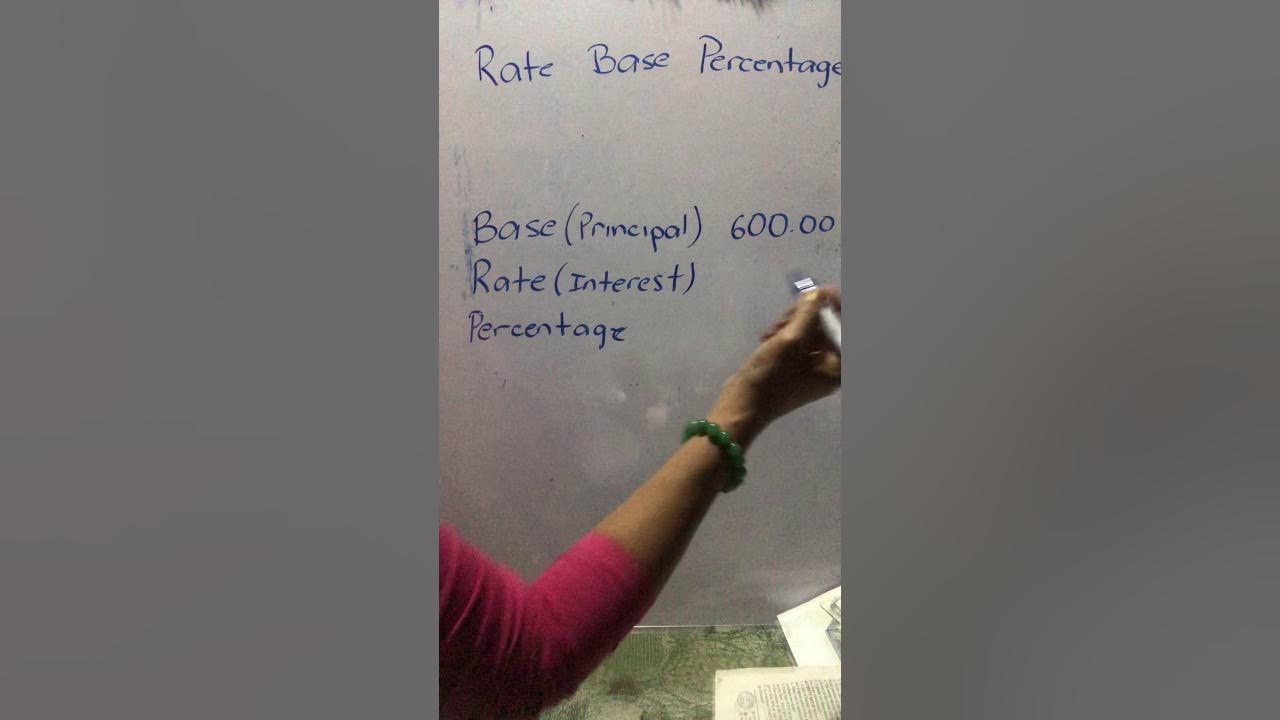 Rate Base Percentage
Base (Principal) 600.00
Rate (Interest)
Percentage